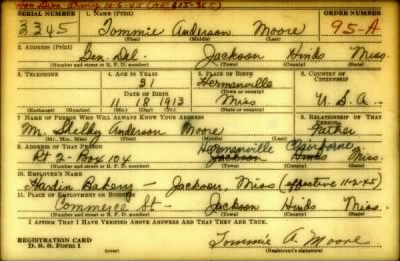 SERIAL NUMBER 1. NAME (Print) ORDER NUMBER
3345 Tommie Anderson Moore 95-A
(First) (Middle) (Last)
2. ADDRESS (Print)
Gen. Del. Jackson Hinds Miss.
(Number and street or R. F. D. number) (Town) (County) (State)
3. TELEPHONE 4. AGE IN YEARS 5. PLACE OF BIRTH 6. COUNTRY OF CITIZENSHIP
31 Hermanville
DATE OF BIRTH (Town or county)
11 18 1913 Miss U.S.A.
(Exchange) (Number) (Mo.) (Day) (Yr.) (State or country)
7. NAME OF PERSON WHO WILL ALWAYS KNOW YOUR ADDRESS 8. RELATIONSHIP OF THAT PERSON
Mr. Shelby Anderson Moore Father
(Mr., Mrs., Miss) (First) (Middle) (Last)
9. ADDRESS OF THAT PERSON Hermanville Claiborne
Rt 2-Box 104 Jackson Hinds Miss.
(Number and street or R. F. D. number) (Town) (County) (State)
10. EMPLOYER'S NAME
Hardin Bakery - Jackson, Miss (effective 11-2-45)
11. PLACE OF EMPLOYMENT OR BUSINESS
Commerce St - Jackson Hinds Miss.
(Number and street or R. F. D. number) (Town) (County) (State)
I AFFIRM THAT I HAVE VERIFIED ABOVE ANSWERS AND THAT THEY ARE TRUE.
REGISTRATION CARD
D. S. S. Form 1 Tommie A. Moore